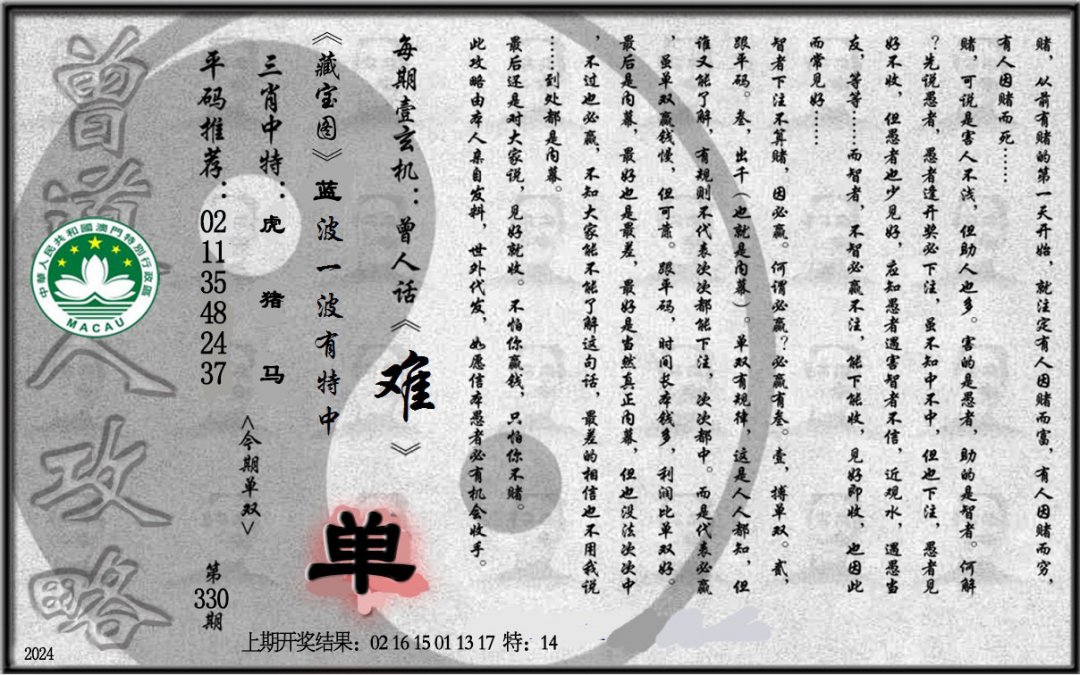 赌，从前有赌的第一天开始，就注定有人因赌而富，有人因赌而穷，
有人因赌而死……
赌，可说是害人不浅，但助人也多。害的是愚者，助的是智者。何解
？先说愚者，愚者逢开奖必下注，虽不知中不中，但也下注，愚者见
好不收，但愚者也少见好，应知愚者遇害智者不信，近观水，遇愚当
友，等等……而智者，不智必赢不注，能下能收，见好即收，也因此
而常见好……
智者下注不算赌，因必赢。何谓必赢？必赢有叁。壹，搏单双。贰，
跟平码。叁，出千（也就是内幕）。单双有规律，这是人人都知，但
谁又能了解，有规则不代表次次都能下注，次次都中。而是代表必赢
，虽单双赢钱慢，但可靠。跟平码，时间长本钱多，利润比单双好。
最后是内幕，最好也是最差，最好是当然真正内幕，但也没法次次中
，不过也必赢，不知大家能不能了解这句话，最差的相信也不用我说
……到处都是内幕。
最后还是对大家说，见好就收。不怕你赢钱，只怕你不赌。
此攻略由本人亲自发料，世外代发，如愿信本愚者必有机会收手。
每期壹玄机：曾人话《难》
《藏宝图》蓝波一波有特中
三肖中特：虎 猪 马
平码推荐：02 11 35 48 24 37
<今期单双>
单
第330期
曾道人攻略
中華人民共和國澳門特別行政區
MACAU
上期开奖结果：02 16 15 01 13 17 特：14
2024